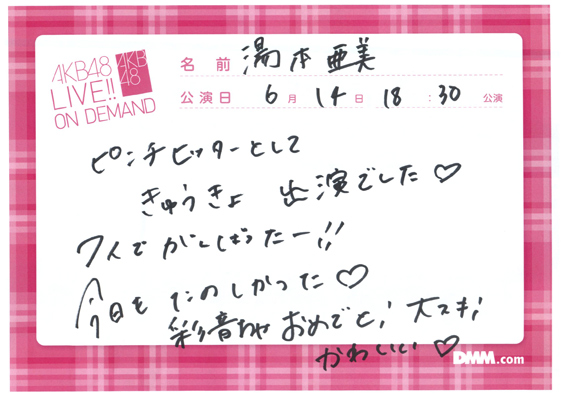 AKB48
LIVE!!
ON DEMAND
AKB
48
名前 湯本亜美
公演日 6月14日 18:30公演
ピンチヒッターとして
きゅうきょ 出演でした♡
7人でがんばったー!!
今日も たのしかった♡
彩音ちゃ おめでと! 大スキ!
かわいい♡
DMM.com